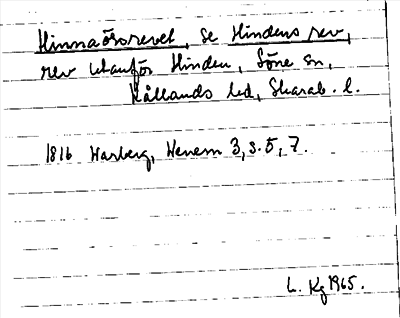 Hinnaörorevet, se Hindens rev,
rev utanför Hinden, Söne sn,
Kållands hd, Skarab. l.
1816 Warberg, Wenern 3, s. 5, 7.
L. Kg 1965.